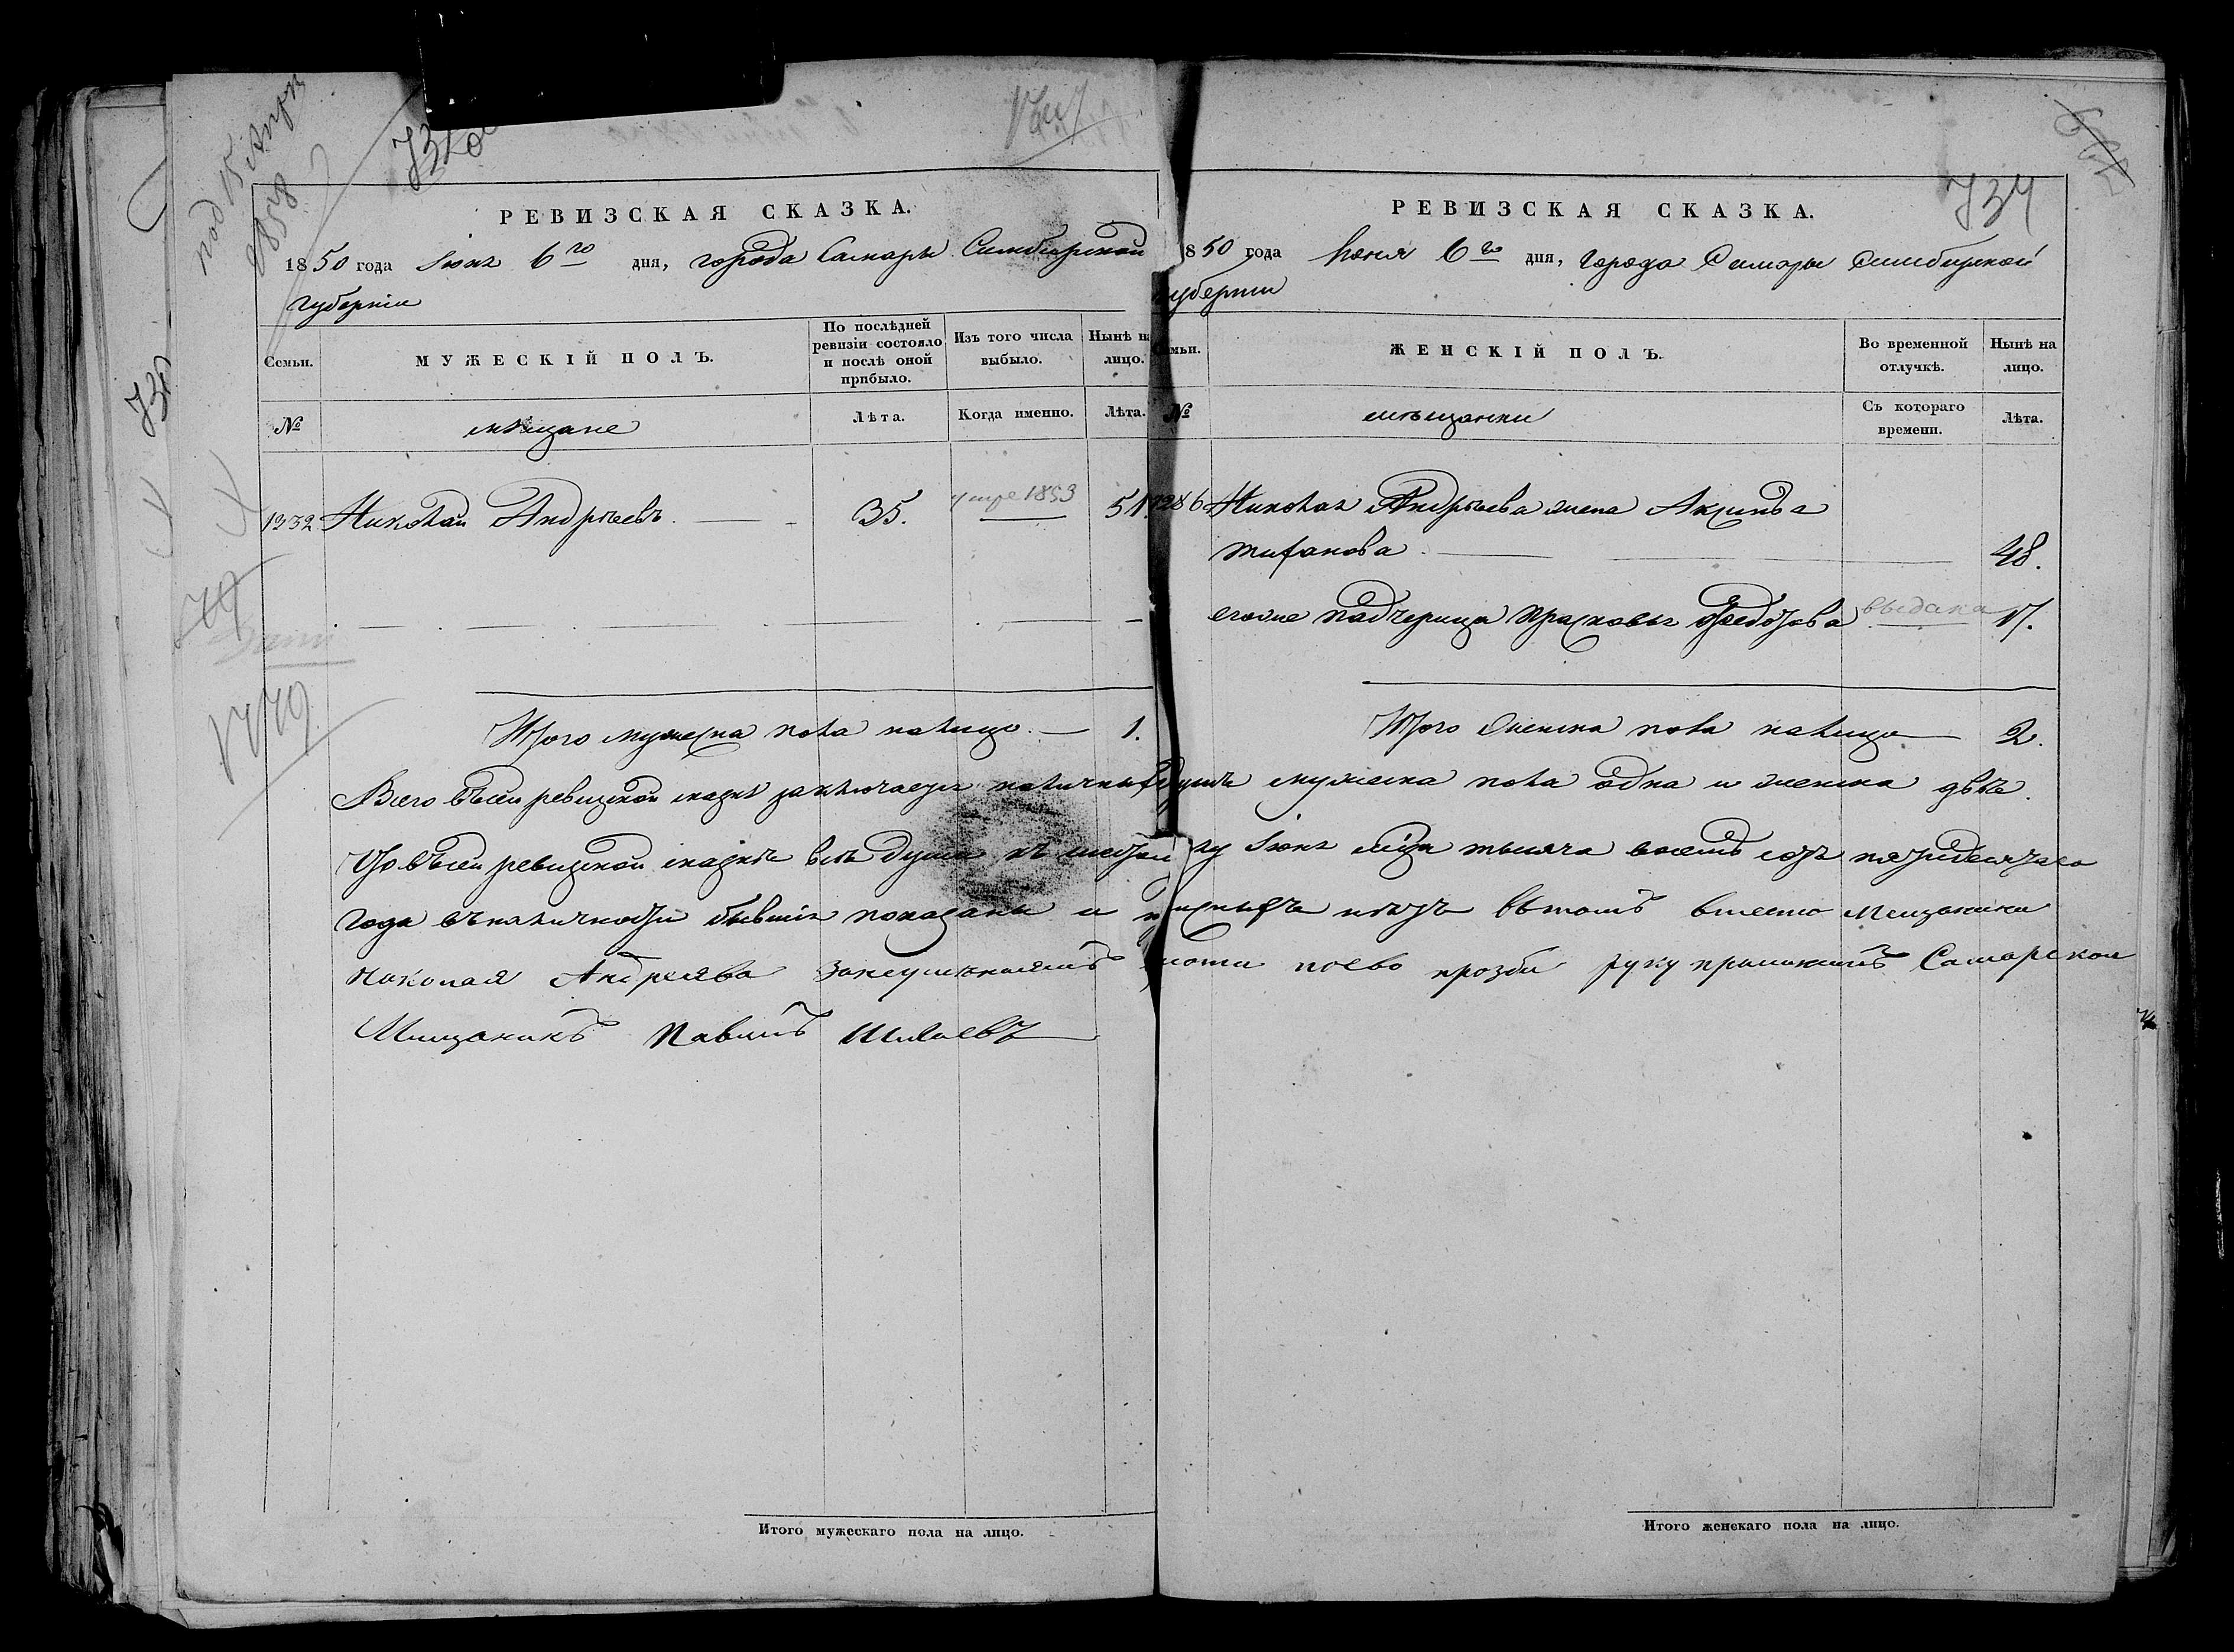 под 15 Апр
1858
734
РЕВИЗСКАЯ СКАЗКА.
1850 года Июня 6го дня, города Самары Симбирской
губернии
Семьи.
МУЖЕСКІЙ ПОЛЪ.
По послѣдней ревизіи состояло и послѣ оной прибыло.
Изъ того числа выбыло.
Нынѣ на лицо.
№
мѣщане
Лѣта.
Когда именно.
Лѣта.
1332 Николай Андрѣевъ 35. умре 1853 51.
Итого мужеска пола налицо 1.
1779
РЕВИЗСКАЯ СКАЗКА.
1850 года Июня 6го дня, города Самары Симбирской
губернии
Семьи.
ЖЕНСКІЙ ПОЛЪ.
Во временной отлучкѣ.
Нынѣ на лицо.
№
мѣщанки
Съ котораго времени.
Лѣта.
1286 Николая Андрѣева жена Акулина
тифанова 48.
егоже падчерица Прасковья Федотова выдана 17.
Итого женска пола налицо 2.
Всего въсей ревизской сказкѣ заключается наличныхъ душъ мужеска пола одна и женска двѣ.
Что въсей ревизской сказкѣ всѣ души къ шестому числу Июня мѣсяца тысяча восемь сотъ пятидесятаго
года въналичности бывшія показаны и прописныхъ нѣтъ вътомъ вместо Мещанина
Николая Андреява Занеумениемъ грамоти поево прозби руку приложилъ Самарской
Мищанинъ Павилъ
Итого мужескаго пола на лицо.
Итого женскаго пола на лицо.